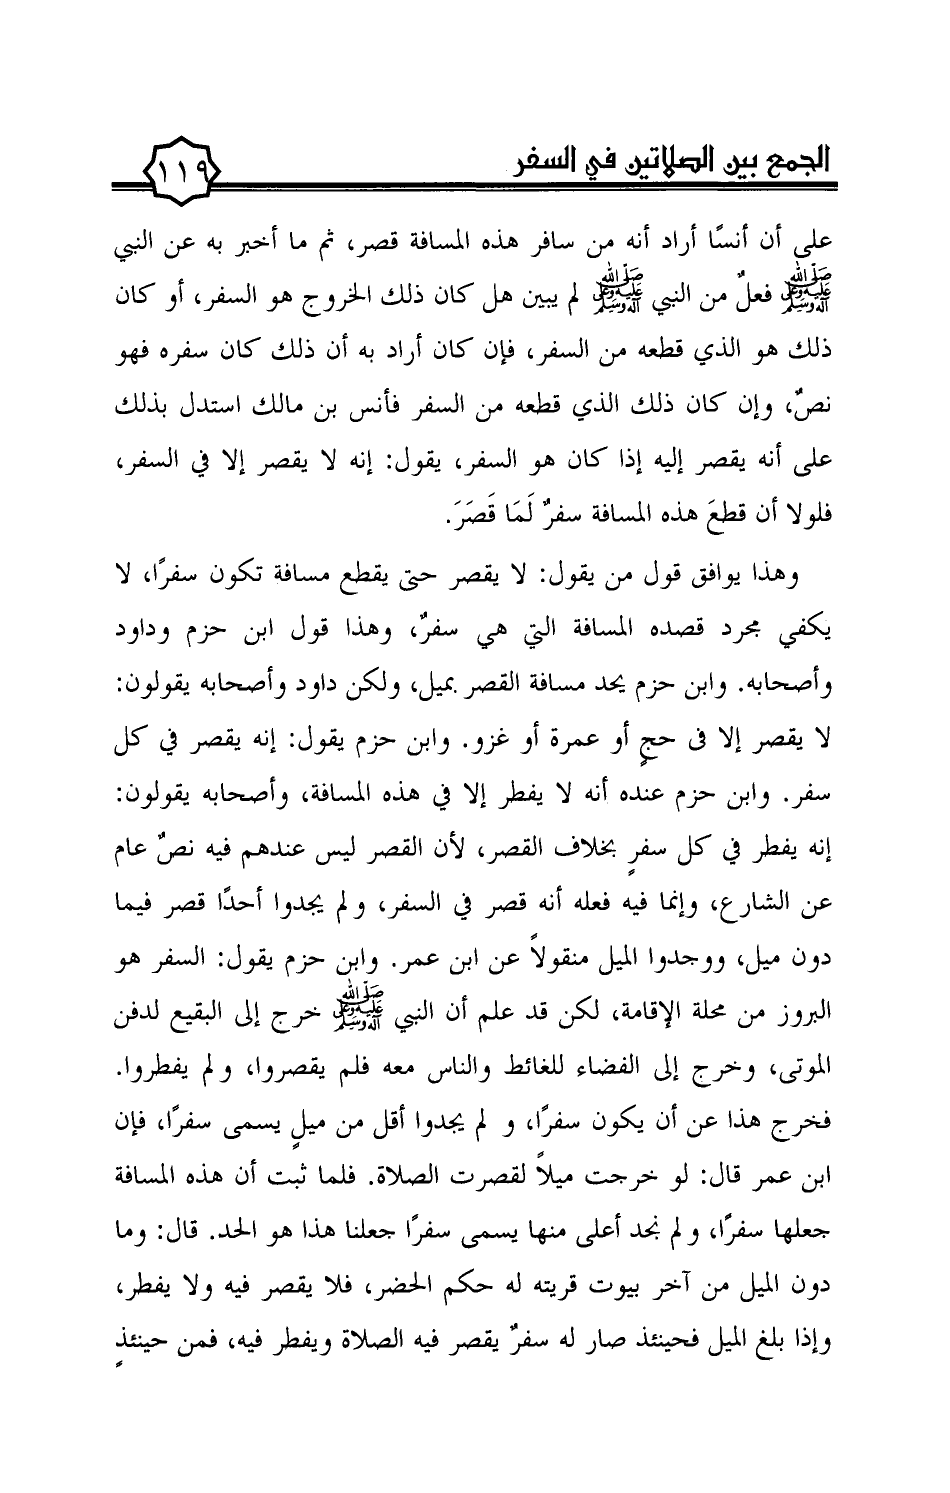 الجمع بين الصلاتين في السفر
١١٩
على أن أنسًا أراد أنه من سافر هذه المسافة قصر، ثم ما أخبر به عن النبي
ﷺ فعلٌ من النبي ﷺ لم يبين هل كان ذلك الخروج هو السفر، أو كان
ذلك هو الذي قطعه من السفر، فإن كان أراد به أن ذلك كان سفره فهو
نصٌ، وإن كان ذلك الذي قطعه من السفر فأنس بن مالك استدل بذلك
على أنه يقصر إليه إذا كان هو السفر، يقول: إنه لا يقصر إلا في السفر،
فلولا أن قطعَ هذه المسافة سفرٌ لَمَا قَصَرَ.
وهذا يوافق قول من يقول: لا يقصر حتى يقطع مسافة تكون سفرًا، لا
يكفي مجرد قصده المسافة التي هي سفرٌ، وهذا قول ابن حزم وداود
وأصحابه. وابن حزم يحد مسافة القصر بميل، ولكن داود وأصحابه يقولون:
لا يقصر إلا فى حجٍ أو عمرة أو غزو. وابن حزم يقول: إنه يقصر في كل
سفر. وابن حزم عنده أنه لا يفطر إلا في هذه المسافة، وأصحابه يقولون:
إنه يفطر في كل سفرٍ بخلاف القصر، لأن القصر ليس عندهم فيه نصٌ عام
عن الشارع، وإنما فيه فعله أنه قصر في السفر، ولم يجدوا أحدًا قصر فيما
دون ميل، ووجدوا الميل منقولاً عن ابن عمر. وابن حزم يقول: السفر هو
البروز من محلة الإقامة، لكن قد علم أن النبي ﷺ خرج إلى البقيع لدفن
الموتى، وخرج إلى الفضاء للغائط والناس معه فلم يقصروا، ولم يفطروا.
فخرج هذا عن أن يكون سفرًا، و لم يجدوا أقل من ميلٍ يسمى سفرًا، فإن
ابن عمر قال: لو خرجت ميلاً لقصرت الصلاة. فلما ثبت أن هذه المسافة
جعلها سفرًا، ولم نجد أعلى منها يسمى سفرًا جعلنا هذا هو الحد. قال: وما
دون الميل من آخر بيوت قريته له حكم الحضر، فلا يقصر فيه ولا يفطر،
وإذا بلغ الميل فحينئذ صار له سفرٌ يقصر فيه الصلاة ويفطر فيه، فمن حينئذٍ